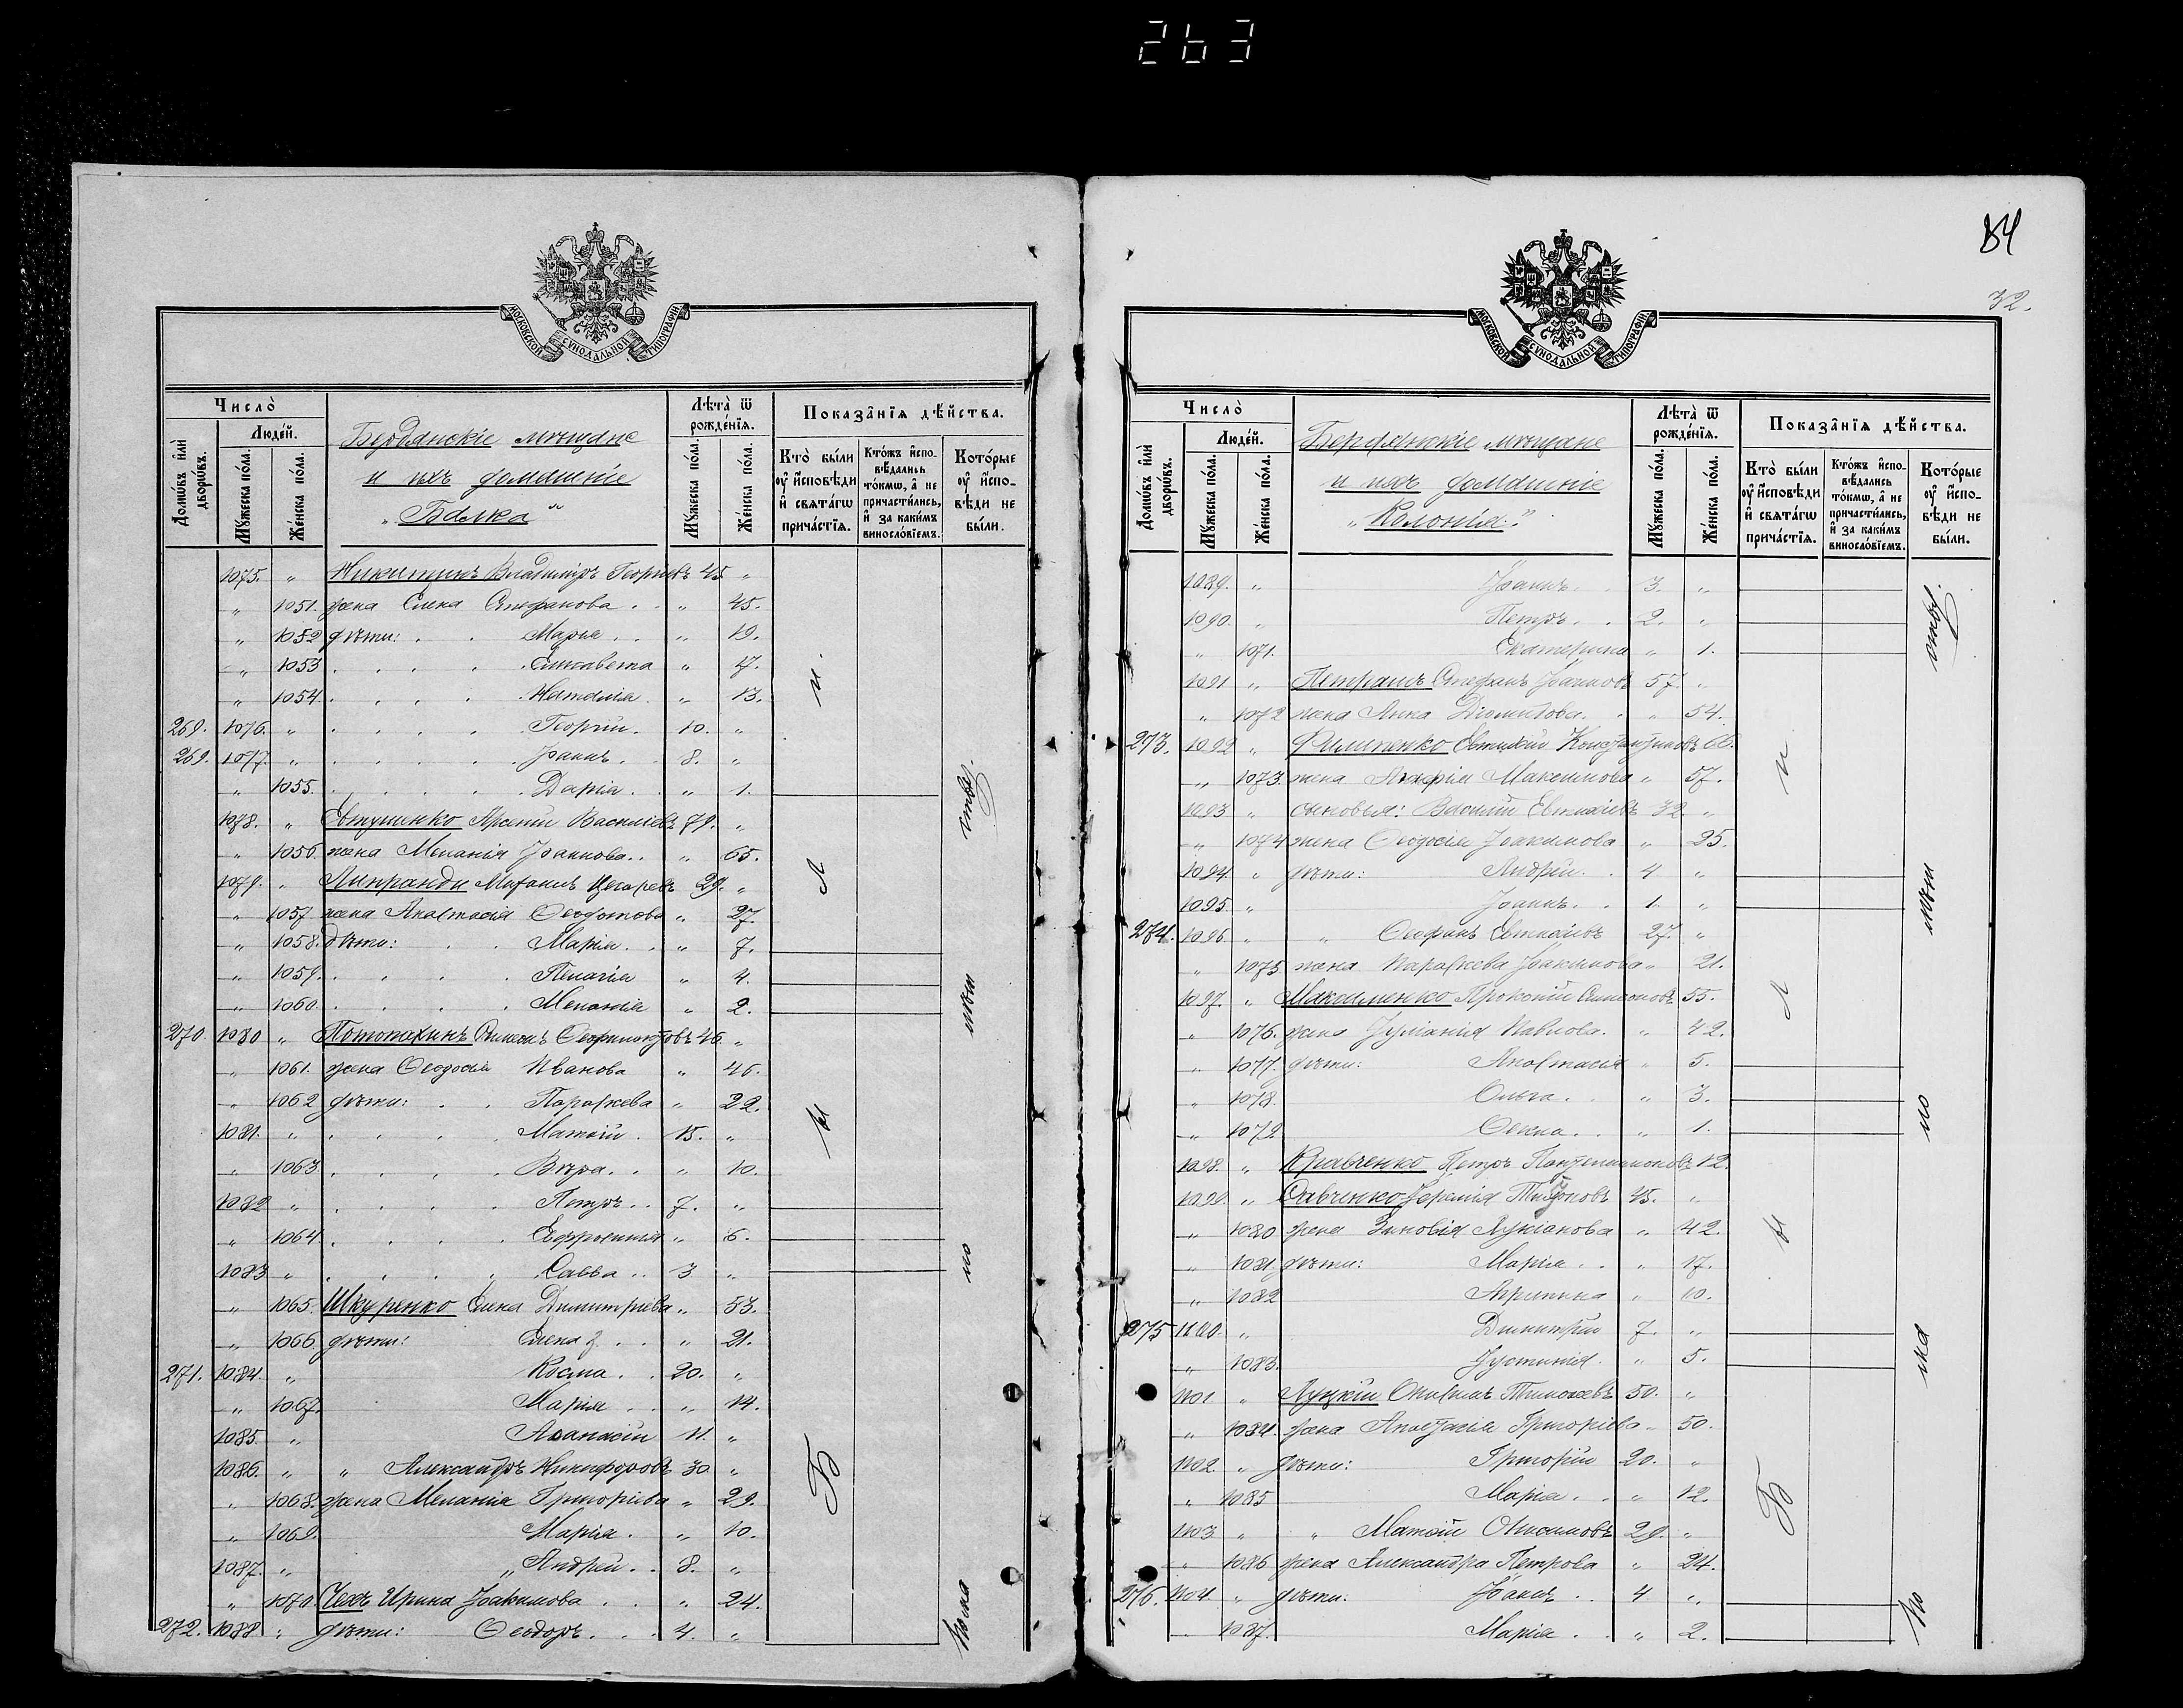 263
МОСКОВСКОЙ СѴНОДАЛЬНОЙ ТИПОГРАФІИ
Число̀
Домѡ́въ и҆лѝ дворѡ́въ.
Люде́й.
Мꙋ́жеска по́ла.
Же́нска по́ла.
Бердянскіе мѣщане
и ихъ домашніе
„Балка"
Лѣта̀ ѿ рожде́нїѧ.
Мꙋ́жеска по́ла.
Же́нска по́ла.
Показа̂нїѧ дѣ́йства.
Кто̀ бы́ли оу҆ и҆сповѣ́ди и҆ свѧта́гѡ прича́стїѧ.
Кто́жъ и҆спо-вѣ́дались то́кмѡ, а҆ не причасти́лись, и҆ за каки́мъ винослѡ́вїемъ.
Кото́рые оу҆ и҆спо-вѣ́ди не бы́ли.
1075. „ Никитинъ Владиміръ Георгіевъ 45 „
„ 1051. жена Елена Стефанова . . „ 45.
„ 1052 дѣти: . . Марія . . „ 19.
„ 1053 . . . . Елисавета „ 17.
„ 1054 . . . . Наталія . „ 13.
269. 1076. „ . . . . Георгій. 10. „
269. 1077. „ . . . . Іоаннъ . 8. „
„ 1055. . . . . Дарія . . „ 1.
1078. „ Евтушенко Арсеній Василіевъ 79. „
„ 1056. жена Меланія Іоаннова . . „ 65.
1079. „ Липранди 29. „
„ 1057 жена Анастасія Ѳеодотова „ 27.
„ 1058. дѣти: . . Марія . . „ 7.
„ 1059. . . . . Пелагія „ 4.
„ 1060. . . . . Меланія „ 2.
270 1080 „ Симеонъ 46. „
„ 1061. жена Ѳеодосія Иванова „ 46.
„ 1062 дѣти: . . Параскева „ 22.
1081. „ . . . . Матѳій . 15. „
„ 1063 . . . . Вѣра . . „ 10.
1082 „ . . . . Петръ . . 7. „
„ 1064 . . . . Ефросинія „ 6.
1083 „ . . . . Савва . . 3 „
„ 1065. Шкуренко Елена Димитріева „ 53.
„ 1066 дѣти: Елена . . „ 21.
271. 1084. „ Косма . . 20. „
„ 1067. Марія . . „ 14.
1085. „ Аѳанасій 11. „
1086. „ „ Александръ Никифоровъ 30 „
„ 1068. жена Меланія Григоріева „ 29.
„ 1069. Марія . „ 10.
1087. „ „ Андрей . . 8. „
„ 1070 Чехъ Ирина Іоакимова . . „ 24.
272. 1088 „ дѣти: Ѳеодоръ . . . 4. „
84
32.
МОСКОВСКОЙ СѴНОДАЛЬНОЙ ТИПОГРАФІИ
Число̀
Домѡ́въ и҆лѝ дворѡ́въ.
Люде́й.
Мꙋ́жеска по́ла.
Же́нска по́ла.
Бердянскіе мѣщане
и ихъ домашніе
„Колонія".
Лѣта̀ ѿ рожде́нїѧ.
Мꙋ́жеска по́ла.
Же́нска по́ла.
Показа̂нїѧ дѣ́йства.
Кто̀ бы́ли оу҆ и҆сповѣ́ди и҆ свѧта́гѡ прича́стїѧ.
Кто́жъ и҆спо-вѣ́дались то́кмѡ, а҆ не причасти́лись, и҆ за каки́мъ винослѡ́вїемъ.
Кото́рые оу҆ и҆спо-вѣ́ди не бы́ли.
1089. „ Іоаннъ . . 3. „
1090. „ Петръ . . 2. „
„ 1071. Екатерина „ 1.
1091 „ Петрашъ Стефанъ Іоанновъ 57. „
„ 1072 жена Анна Діомидова . . „ 54.
273. 1092 „ Филипенко Евтихій Константиновъ 66.
„ 1073. жена Агафія Максимова „ 57.
1093 „ сыновья: Василій Евтихіевъ 32. „
„ 1074 жена Ѳеодосія Іоакимова „ 25.
1094. „ дѣти: Андрій . . 4 „
1095. „ Іоаннъ . . 1. „
274. 1096. „ „ Стефанъ Евтихіевъ 27. „
„ 1075 жена Параскева Іоакимова „ 21.
1097. „ Максименко Прокопій Симеоновъ 55.
„ 1076. жена Іуліанія Павлова . „ 42.
„ 1077. дѣти: Анастасія „ 5.
„ 1078. Ольга . . „ 3.
„ 1072 Елена . . „ 1.
1098. „ Кравченко Петръ Пантелеимоновъ 12.
1099. „ Савченко Іеремія Тихоновъ 45. „
„ 1080 жена Зиновія Лукіанова „ 42.
„ 1081 дѣти: Марія . . „ 17.
„ 1082 Агрипина „ 10.
275 1100. „ Димитрій 7. „
„ 1083. Іустинія . „ 5.
1101 „ Луцкій Онисимъ Тимоѳеевъ 50. „
„ 1084. жена Анастасія Григоріева „ 50.
1102. „ дѣти: Григорій 20. „
„ 1085 Марія . . „ 12.
1103 „ „ Матѳій Онисимовъ 29. „
„ 1086 жена Александра Петрова „ 24.
276. 1104. „ дѣти: Іоаннъ . . 4 „
„ 1087. Марія . . „ 2.